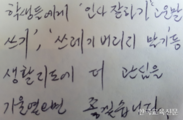 학생들에게 '인사 잘하기', 운발
쓰기', '쓰레기 버리지 않기' 등
생활지도에 더 관심을
기울였으면 좋겠습니다